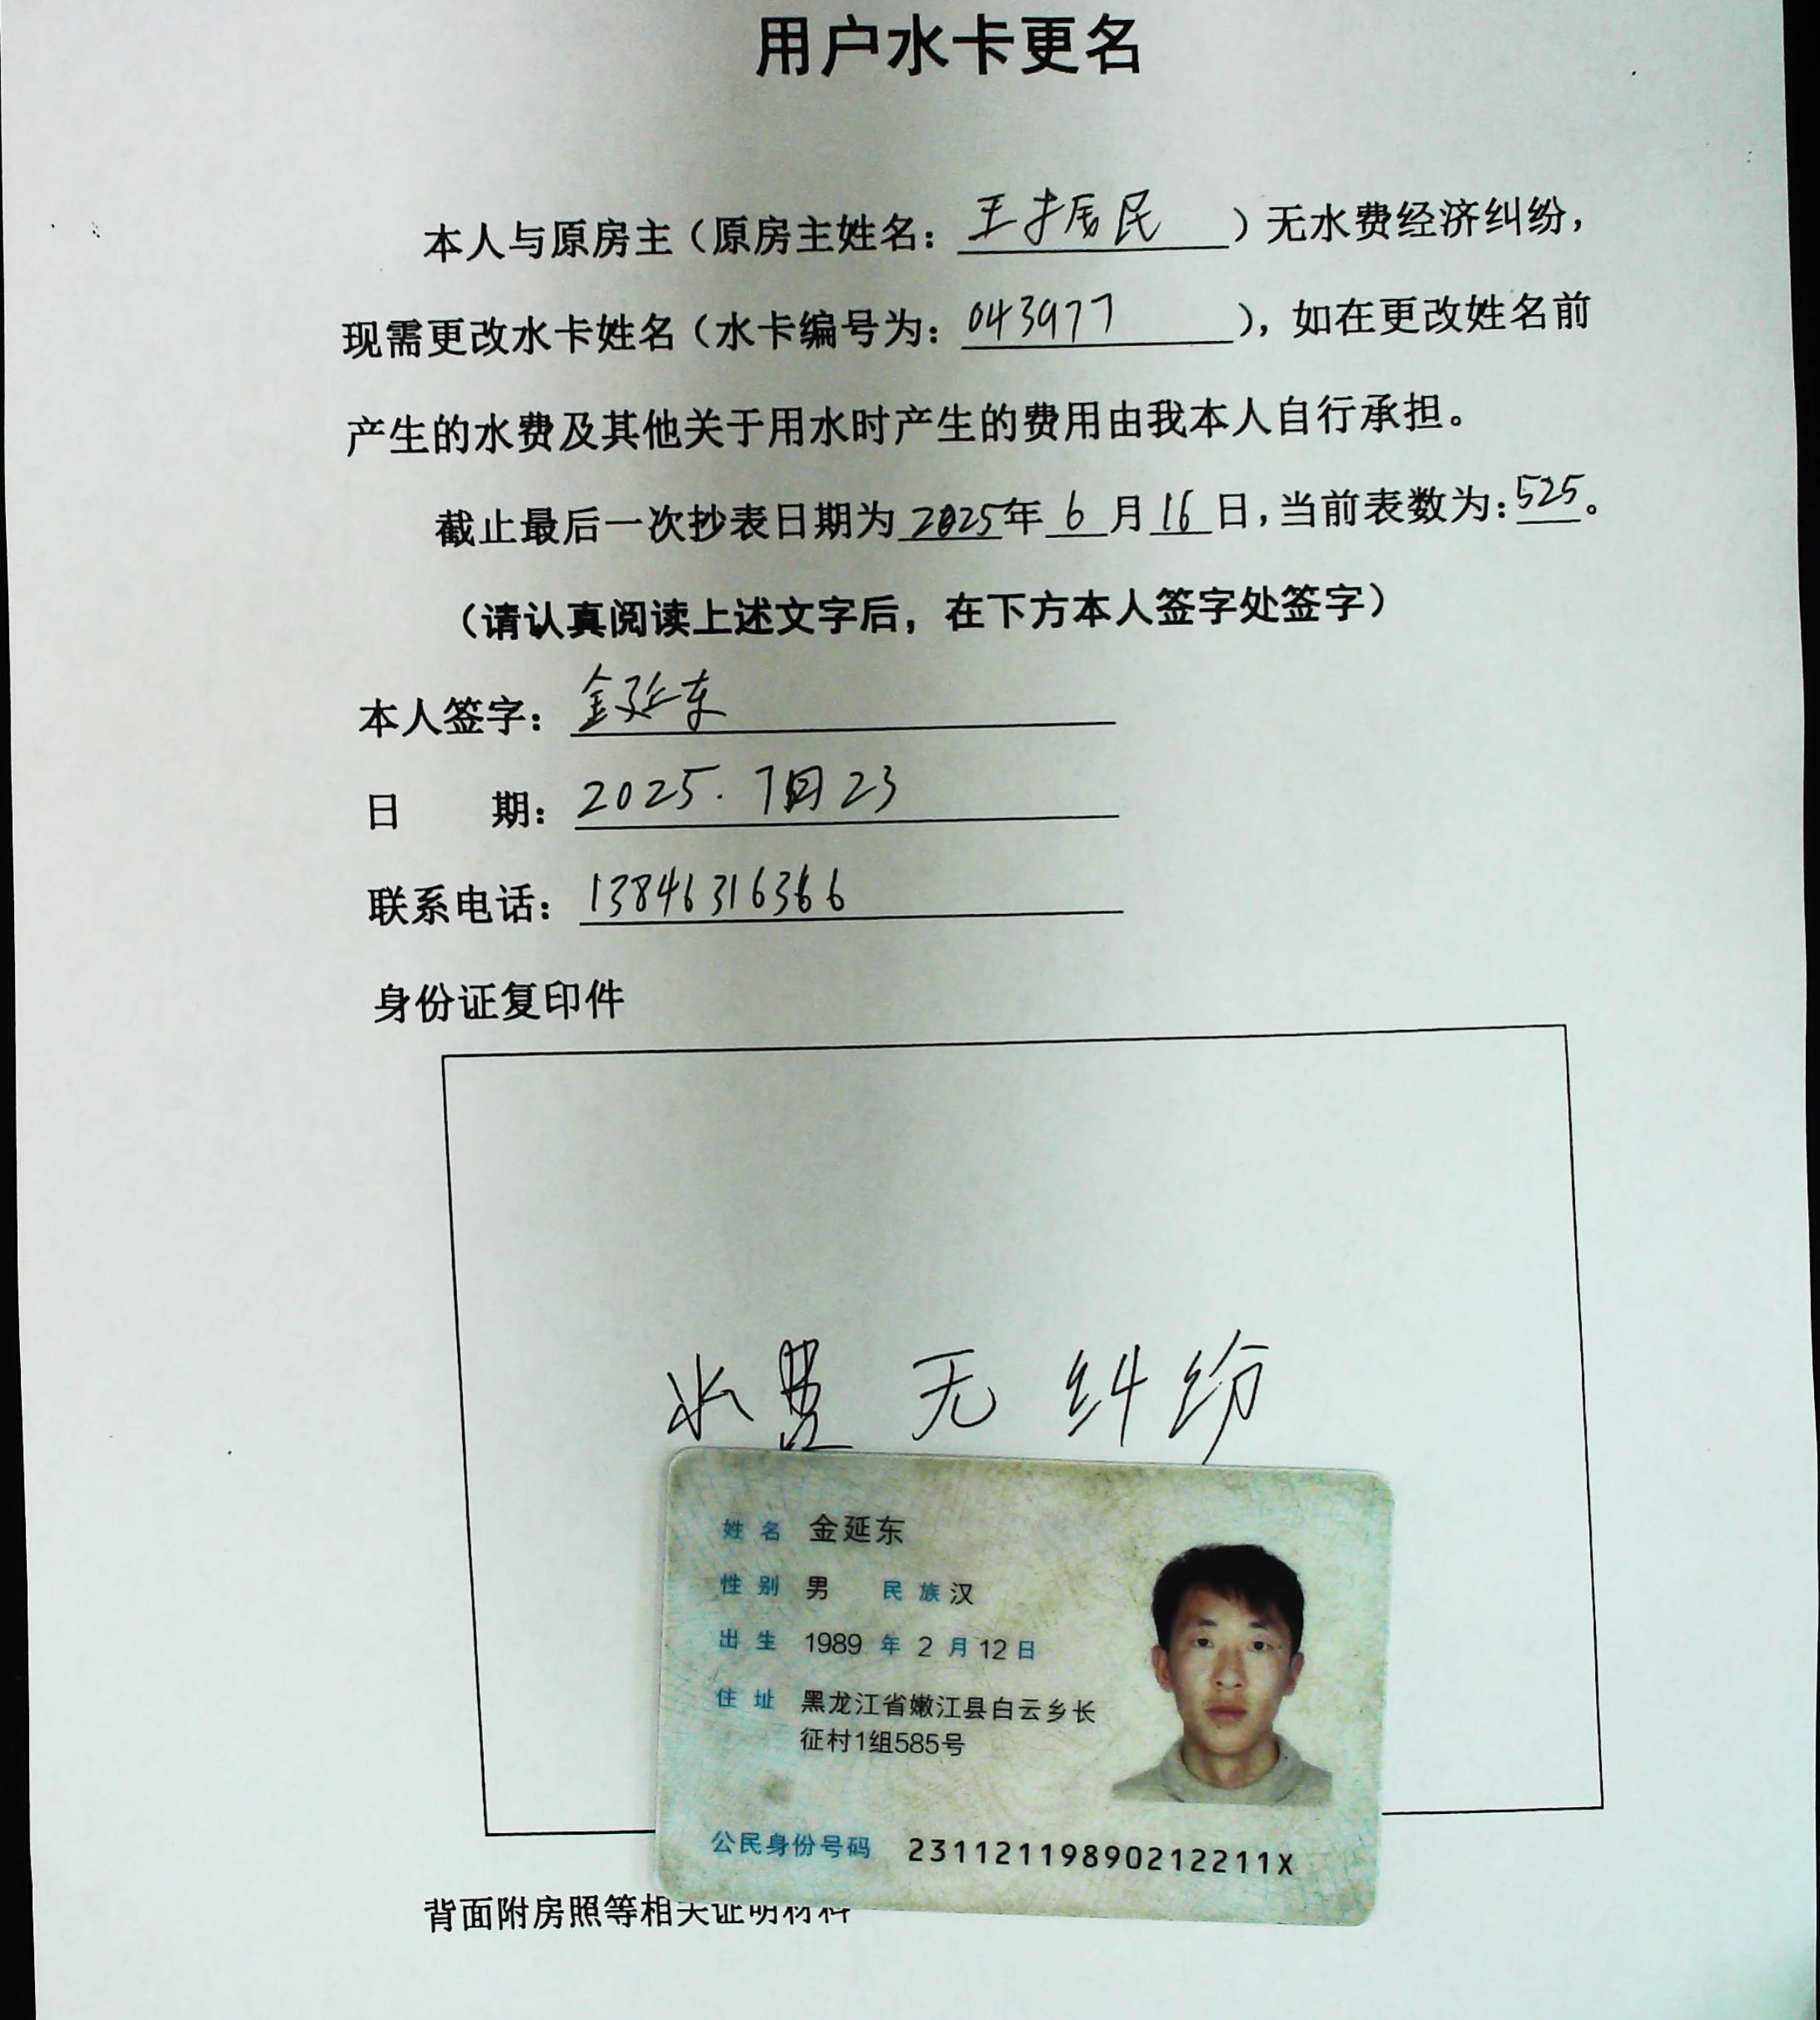 用户水卡更名
本人与原房主（原房主姓名：王振民）无水费经济纠纷，
现需更改水卡姓名（水卡编号为：043977），如在更改姓名前
产生的水费及其他关于用水时产生的费用由我本人自行承担。
截止最后一次抄表日期为2025年6月16日，当前表数为：525。
（请认真阅读上述文字后，在下方本人签字处签字）
本人签字：金延东
日 期：2025.7月23
联系电话：13846316366
身份证复印件
水费 无 纠纷
姓名 金延东
性别 男 民族 汉
出生 1989 年 2 月 12 日
住址 黑龙江省嫩江县白云乡长
征村1组585号
公民身份号码 23112119890212211X
背面附房照等相关证明材料